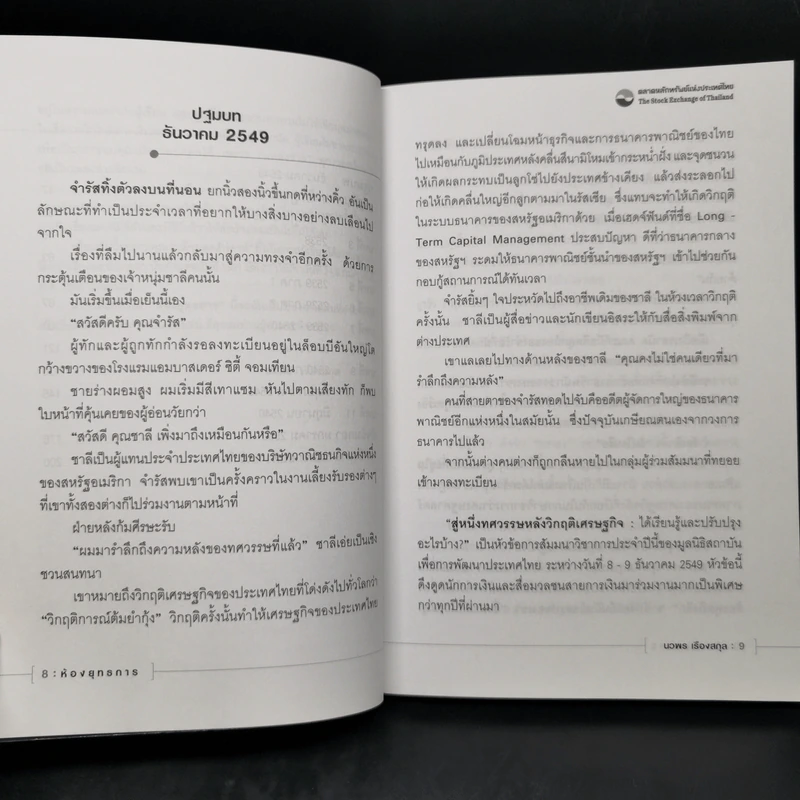 ปฐมบท
ธันวาคม 2549
จำรัสทิ้งตัวลงบนที่นอน ยกนิ้วสองนิ้วขึ้นกดที่หว่างคิ้ว อันเป็น
ลักษณะที่ทำเป็นประจำเวลาที่อยากให้บางสิ่งบางอย่างลบเลือนไป
จากใจ
เรื่องที่ลืมไปนานแล้วกลับมาสู่ความทรงจำอีกครั้ง ด้วยการ
กระตุ้นเตือนของเจ้าหนุ่มชาลีคนนั้น
มันเริ่มขึ้นเมื่อเย็นนี้เอง
“สวัสดีครับ คุณจำรัส”
ผู้ทักและผู้ถูกทักกำลังรอลงทะเบียนอยู่ในล็อบบีอันใหญ่โต
กว้างขวางของโรงแรมแอมบาสเดอร์ ซิตี้ จอมเทียน
ชายร่างผอมสูง ผมเริ่มมีสีเทาแซม หันไปตามเสียงทัก ก็พบ
ใบหน้าที่คุ้นเคยของผู้อ่อนวัยกว่า
“สวัสดี คุณชาลี เพิ่งมาถึงเหมือนกันหรือ”
ชาลีเป็นผู้แทนประจำประเทศไทยของบริษัทวาณิชธนกิจแห่งหนึ่ง
ของสหรัฐอเมริกา จำรัสพบเขาเป็นครั้งคราวในงานเลี้ยงรับรองต่างๆ
ที่เขาทั้งสองต่างก็ไปร่วมงานตามหน้าที่
ฝ่ายหลังก้มศีรษะรับ
“ผมมารำลึกถึงความหลังของทศวรรษที่แล้ว” ชาลีเอ่ยเป็นเชิง
ชวนสนทนา
เขาหมายถึงวิกฤติเศรษฐกิจของประเทศไทยที่โด่งดังไปทั่วโลกว่า
“วิกฤติการณ์ต้มยำกุ้ง” วิกฤติครั้งนั้นทำให้เศรษฐกิจของประเทศไทย
8 : ห้องยุทธการ
ตลาดหลักทรัพย์แห่งประเทศไทย
The Stock Exchange of Thailand
ทรุดลง และเปลี่ยนโฉมหน้าธุรกิจและการธนาคารพาณิชย์ของไทย
ไปเหมือนกับภูมิประเทศหลังคลื่นสึนามิโหมเข้ากระหน่ำฝั่ง และจุดชนวน
ให้เกิดผลกระทบเป็นลูกโซ่ไปยังประเทศข้างเคียง แล้วส่งระลอกไป
ก่อให้เกิดคลื่นใหญ่อีกลูกตามมาในรัสเซีย ซึ่งแทบจะทำให้เกิดวิกฤติ
ในระบบธนาคารของสหรัฐอเมริกาด้วย เมื่อเฮดจ์ฟันด์ที่ชื่อ Long -
Term Capital Management ประสบปัญหา ดีที่ว่าธนาคารกลาง
ของสหรัฐฯ ระดมให้ธนาคารพาณิชย์ชั้นนำของสหรัฐฯ เข้าไปช่วยกัน
กอบกู้สถานการณ์ได้ทันเวลา
จำรัสยิ้มๆ ใจประหวัดไปถึงอาชีพเดิมของชาลี ในห้วงเวลาวิกฤติ
ครั้งนั้น ชาลีเป็นผู้สื่อข่าวและนักเขียนอิสระให้กับสื่อสิ่งพิมพ์จาก
ต่างประเทศ
เขาแลเลยไปทางด้านหลังของชาลี “คุณคงไม่ใช่คนเดียวที่มา
รำลึกถึงความหลัง”
คนที่สายตาของจำรัสทอดไปจับคืออดีตผู้จัดการใหญ่ของธนาคาร
พาณิชย์อีกแห่งหนึ่งในสมัยนั้น ซึ่งปัจจุบันเกษียณตนเองจากวงการ
ธนาคารไปแล้ว
จากนั้นต่างคนต่างก็ถูกกลืนหายไปในกลุ่มผู้ร่วมสัมมนาที่ทยอย
เข้ามาลงทะเบียน
“สู่หนึ่งทศวรรษหลังวิกฤติเศรษฐกิจ : ได้เรียนรู้และปรับปรุง
อะไรบ้าง?” เป็นหัวข้อการสัมมนาวิชาการประจำปีนี้ของมูลนิธิสถาบัน
เพื่อการพัฒนาประเทศไทย ระหว่างวันที่ 8 - 9 ธันวาคม 2549 หัวข้อนี้
ดึงดูดนักการเงินและสื่อมวลชนสายการเงินมาร่วมงานมากเป็นพิเศษ
กว่าทุกปีที่ผ่านมา
นวพร เรืองสกุล : 9